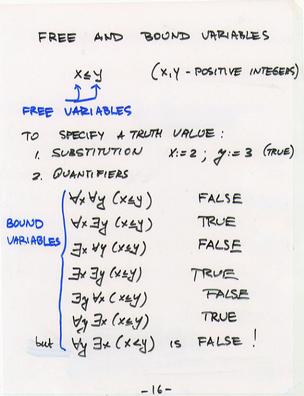 FREE AND BOUND VARIABLES
x≤y (x,y - POSITIVE INTEGERS)
FREE VARIABLES
TO SPECIFY A TRUTH VALUE:
1. SUBSTITUTION x:=2; y:=3 (TRUE)
2. QUANTIFIERS
BOUND VARIABLES
∀x ∀y (x≤y) FALSE
∀x ∃y (x≤y) TRUE
∃x ∀y (x≤y) FALSE
∃x ∃y (x≤y) TRUE
∃y ∀x (x≤y) FALSE
∀y ∃x (x≤y) TRUE
but ∀y ∃x (x<y) IS FALSE!
-16-